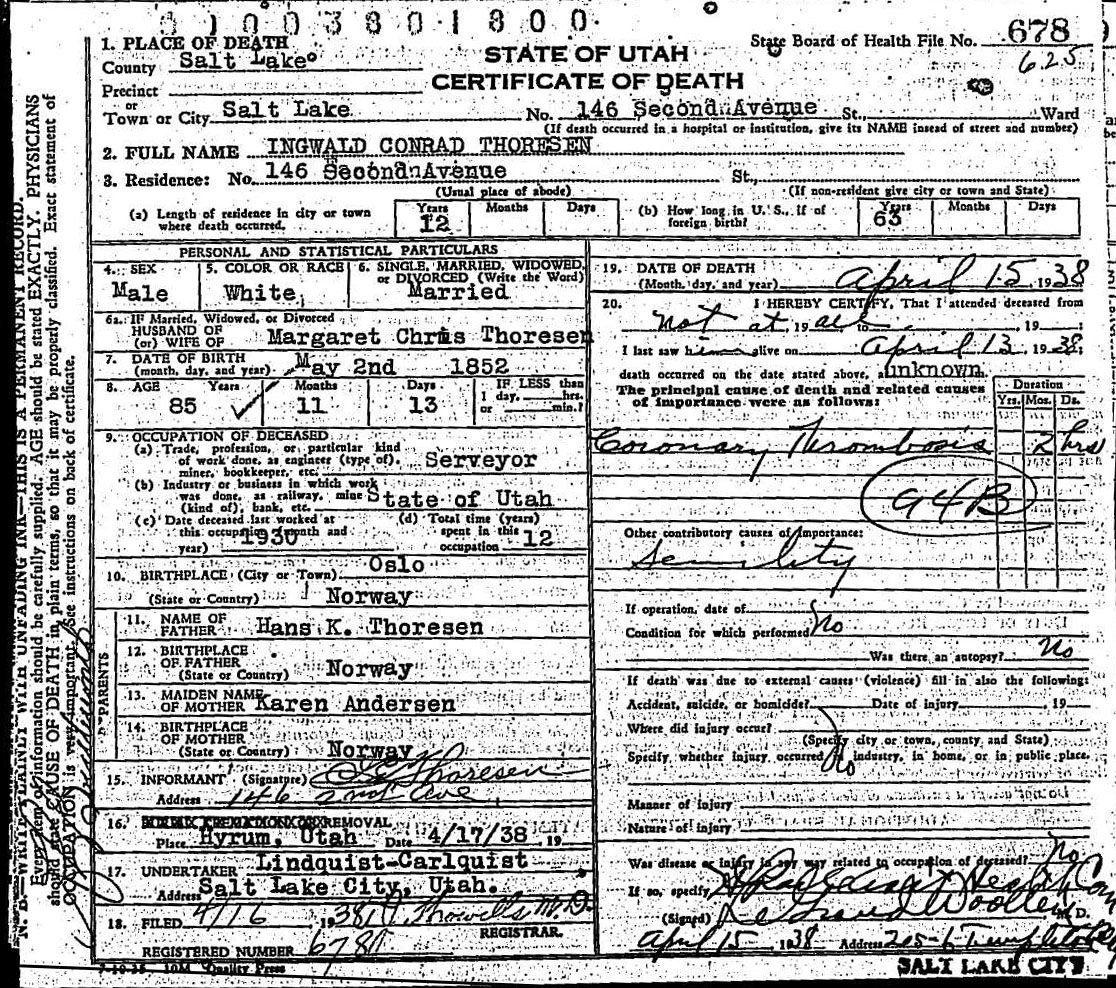 8 1 0 0 3 8 0 1 8 0 0
State Board of Health File No. 678
625
STATE OF UTAH
CERTIFICATE OF DEATH
1. PLACE OF DEATH
County Salt Lake
Precinct
or
Town or City Salt Lake No. 146 Second Avenue St., Ward
(If death occurred in a hospital or institution, give its NAME insead of street and number)
2. FULL NAME INGWALD CONRAD THORESEN
3. Residence: No. 146 Second Avenue St.,
(Usual place of abode) (If non-resident give city or town and State)
(a) Length of residence in city or town where death occurred. Years 12 Months Days
(b) How long in U. S., if of foreign birth? Years 63 Months Days
PERSONAL AND STATISTICAL PARTICULARS
4. SEX Male
5. COLOR OR RACE White
6. SINGLE, MARRIED, WIDOWED, or DIVORCED (Write the Word) Married
6a. IF Married, Widowed, or Divorced
HUSBAND OF
(or) WIFE OF Margaret Chris Thoresen
7. DATE OF BIRTH
(month, day, and year) May 2nd 1852
8. AGE Years 85 Months 11 Days 13
IF LESS than
1 day, hrs.
or min.?
9. OCCUPATION OF DECEASED
(a) Trade, profession, or particular kind
of work done, as engineer (type of),
miner, bookkeeper, etc. Serveyor
(b) Industry or business in which work
was done, as railway, mine
(kind of), bank, etc. State of Utah
(c) Date deceased last worked at
this occupation (month and
year) 1930
(d) Total time (years)
spent in this
occupation 12
10. BIRTHPLACE (City or Town) Oslo
(State or Country) Norway
PARENTS
11. NAME OF
FATHER Hans K. Thoresen
12. BIRTHPLACE
OF FATHER
(State or Country) Norway
13. MAIDEN NAME
OF MOTHER Karen Andersen
14. BIRTHPLACE
OF MOTHER
(State or Country) Norway
15. INFORMANT (Signature) Thoresen
Address 146 2nd Ave
16. BURIAL CREMATION OR REMOVAL
Place Hyrum, Utah Date 4/17/38, 19
17. UNDERTAKER Lindquist-Carlquist
Address Salt Lake City, Utah.
18. FILED 4/16 1938 M. D.
REGISTRAR.
REGISTERED NUMBER 678
7-10-35 10M Quality Press
19. DATE OF DEATH
(Month, day, and year) April 15, 1938
20. I HEREBY CERTIFY, That I attended deceased from
not at, 19 all to , 19 ;
I last saw him alive on April 13, 1938;
death occurred on the date stated above, at unknown.
The principal cause of death and related causes
of importance were as follows:
Duration
Yrs. Mos. Ds.
Coronary Thrombosis 2 hrs
94B
Other contributory causes of importance:
Senility
If operation, date of
Condition for which performed No
Was there an autopsy? No
If death was due to external causes (violence) fill in also the following:
Accident, suicide, or homicide? Date of injury , 19
Where did injury occur?
(Specify city or town, county, and State)
Specify whether injury occurred in industry, in home, or in public place.
No
Manner of injury
Nature of injury
Was disease or injury in any way related to occupation of deceased? No
If so, specify
(Signed) LeGrand Woolley M. D.
April 15 1938 Address 205-6 Templeton
SALT LAKE CITY
N. B.—WRITE PLAINLY WITH UNFADING INK—THIS IS A PERMANENT RECORD.
Every item of information should be carefully supplied. AGE should be stated EXACTLY. PHYSICIANS
should state CAUSE OF DEATH in plain terms, so that it may be properly classified. Exact statement of
OCCUPATION is very important. See instructions on back of certificate.